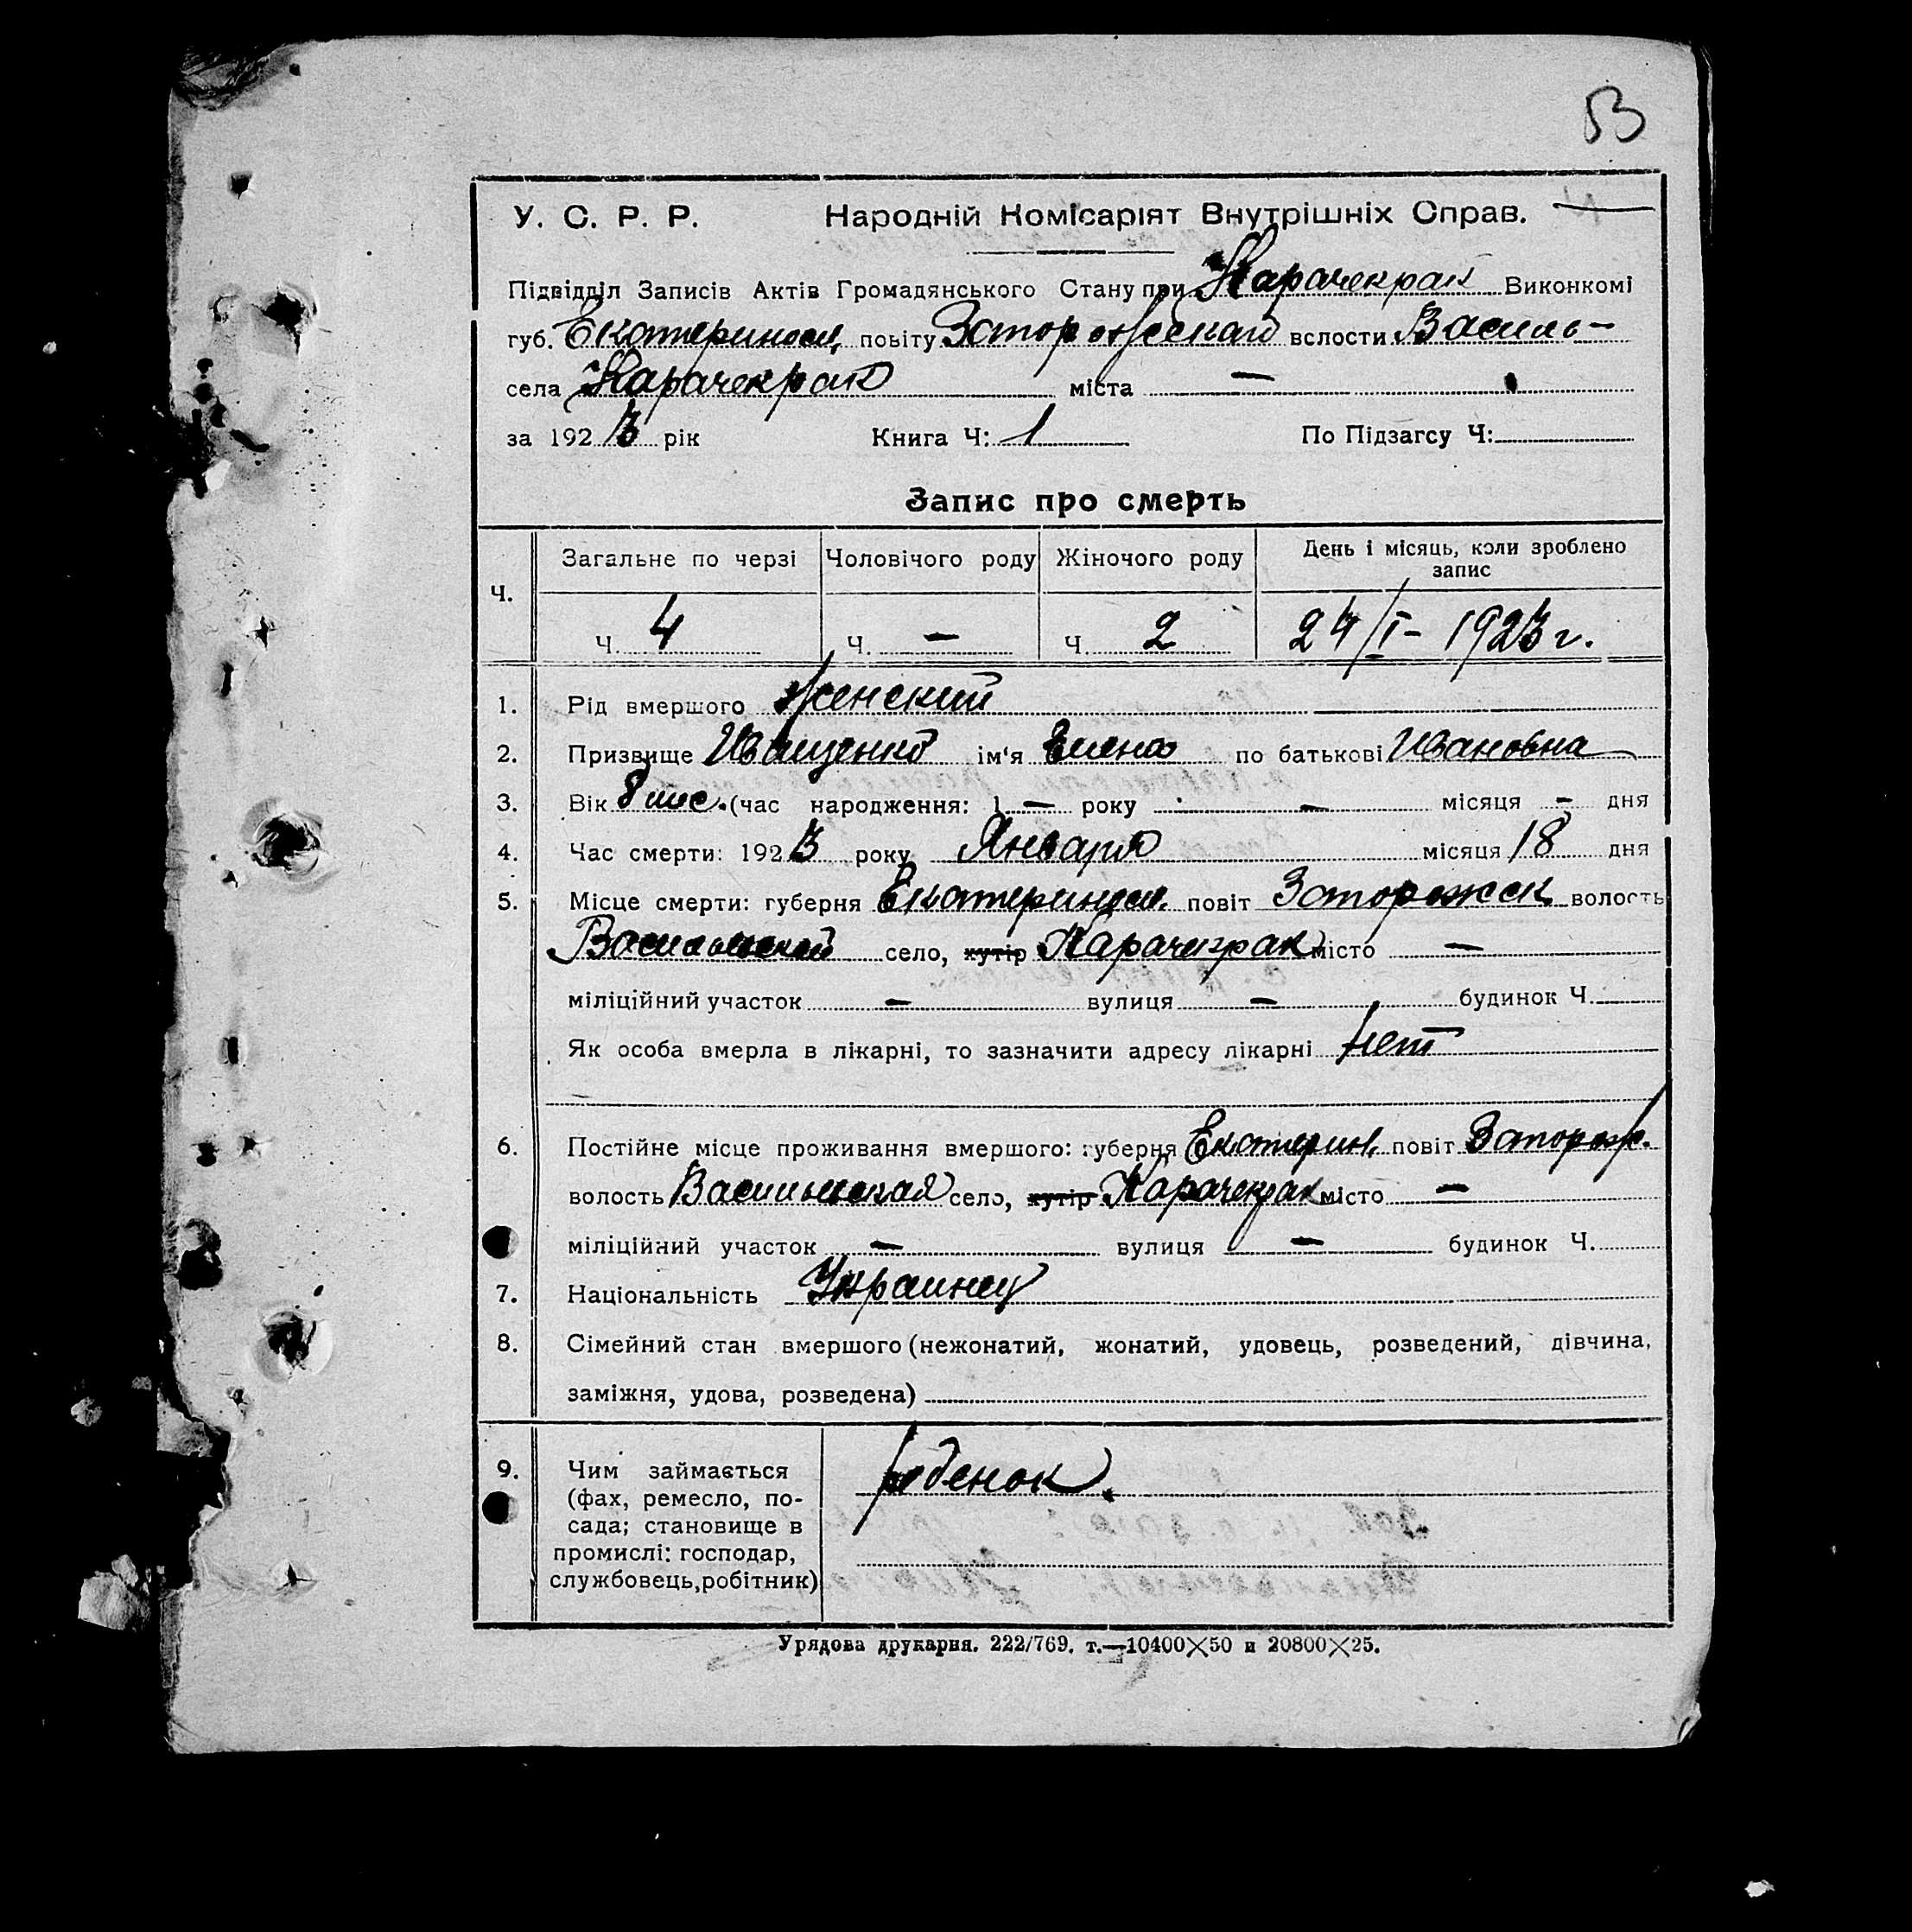 53
У. С. Р. Р. Народній Комісаріят Внутрішніх Справ. 4
Підвідділ Записів Актів Громадянського Стану при Карачекрак Виконкомі
губ. Екатериносл. повіту Запорожскаго вслости Василь-
села Карачекрак міста —
за 1923 рік Книга Ч: 1 По Підзагсу Ч:
Запис про смерть
Ч. Загальне по черзі Чоловічого роду Жіночого роду День і місяць, коли зроблено запис
Ч. 4 Ч. — Ч. 2 24/I- 1923 г.
1. Рід вмершого женский
2. Призвище Иващенко ім'я Елена по батькові Ивановна
3. Вік 8 мес. (час народження: 1 — року — місяця - дня
4. Час смерти: 1923 року Января місяця 18 дня
5. Місце смерти: губерня Екатериносл. повіт Запорожск. волость
Васильевской село, хутір Карачекрак місто —
міліційний участок — вулиця — будинок Ч.
Як особа вмерла в лікарні, то зазначити адресу лікарні нет
6. Постійне місце проживання вмершого: губерня Екатерин. повіт Запорож.
волость Васильевская село, хутір Карачекрак місто —
міліційний участок — вулиця — будинок Ч.
7. Національність Украинец
8. Сімейний стан вмершого (нежонатий, жонатий, удовець, розведений, дівчина,
заміжня, удова, розведена)
9. Чим займається ребенок.
(фах, ремесло, по-
сада; становище в
промислі: господар,
службовець, робітник)
Урядова друкарня. 222/769. т.—10400×50 и 20800×25.